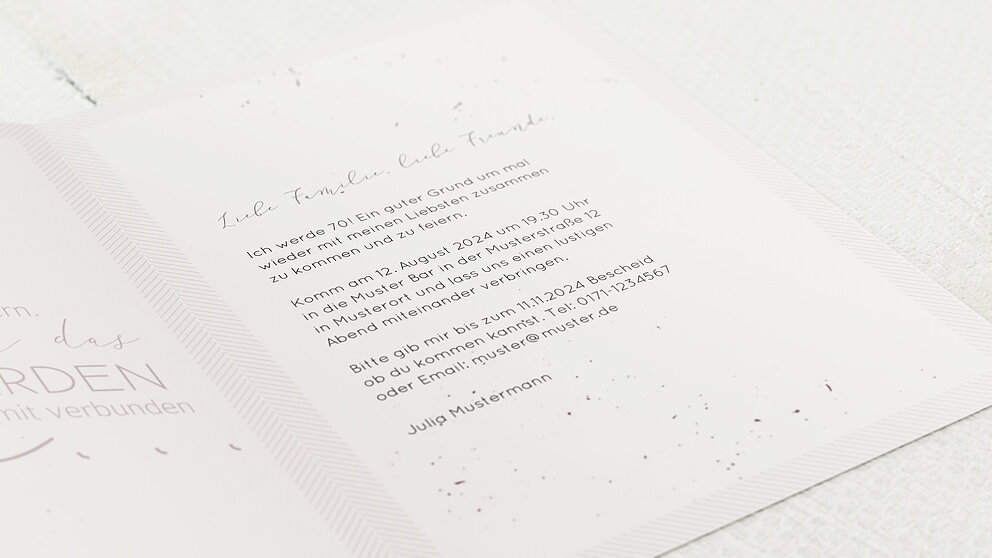 Liebe Familie, liebe Freunde,
Ich werde 70! Ein guter Grund um mal
wieder mit meinen Liebsten zusammen
zu kommen und zu feiern.
Komm am 12. August 2024 um 19.30 Uhr
in die Muster Bar in der Musterstraße 12
in Musterort und lass uns einen lustigen
Abend miteinander verbringen.
Bitte gib mir bis zum 11.11.2024 Bescheid
ob du kommen kannst. Tel: 0171-1234567
oder Email: muster@muster.de
Julia Mustermann
das
mit verbunden